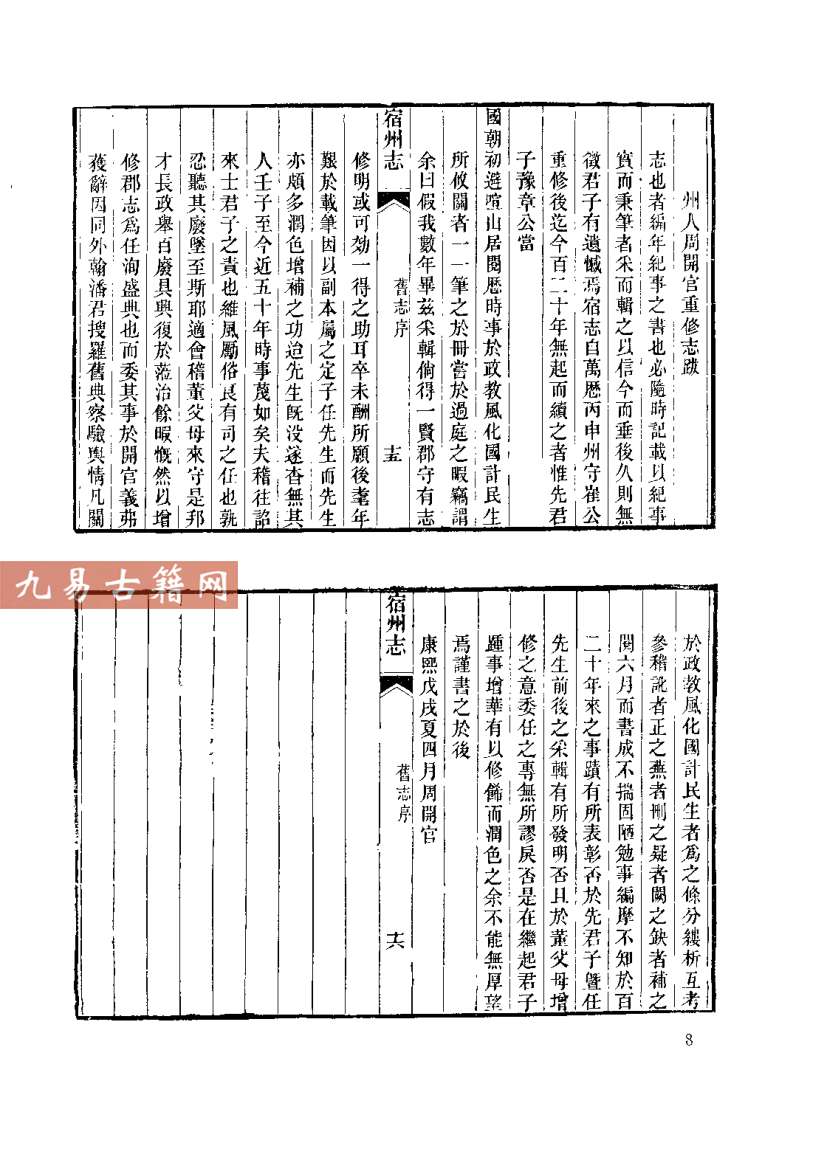 州人周開官重修志跋
志也者編年紀事之書也必隨時記載以紀事
實而秉筆者采而輯之以信今而垂後久則無
徵君子有遺憾焉宿志自萬歷丙申州守崔公
重修後迄今百二十年無起而續之者惟先君
子豫章公當
國朝初避喧山居閱歷時事於政教風化國計民生
所攸關者一一筆之於冊嘗於過庭之暇竊謂
余曰假我數年畢兹采輯倘得一賢郡守有志
宿州志
舊志序
十五
修明或可効一得之助耳卒未酬所願後耄年
艱於載筆因以副本屬之定子任先生而先生
亦頗多潤色增補之功迨先生旣没遂杳無其
人壬子至今近五十年時事蔑如矣夫稽往詔
來士君子之責也維風勵俗良有司之任也孰
忍聽其廢墜至斯耶適會稽董父母來守是邦
才長政舉百廢具興復於蒞治餘暇慨然以增
修郡志爲任洵盛典也而委其事於開官義弗
獲辭因同外翰潘君搜羅舊典察驗輿情凡關
於政教風化國計民生者爲之條分縷析互考
參稽訛者正之蕪者刪之疑者闕之缺者補之
閱六月而書成不揣固陋勉事編摩不知於百
二十年來之事蹟有所表彰否於先君子曁任
先生前後之采輯有所發明否且於董父母增
修之意委任之專無所謬戾否是在繼起君子
踵事增華有以修飾而潤色之余不能無厚望
焉謹書之於後
康熙戊戌夏四月周開官
宿州志
舊志序
十六
九易古籍网
8